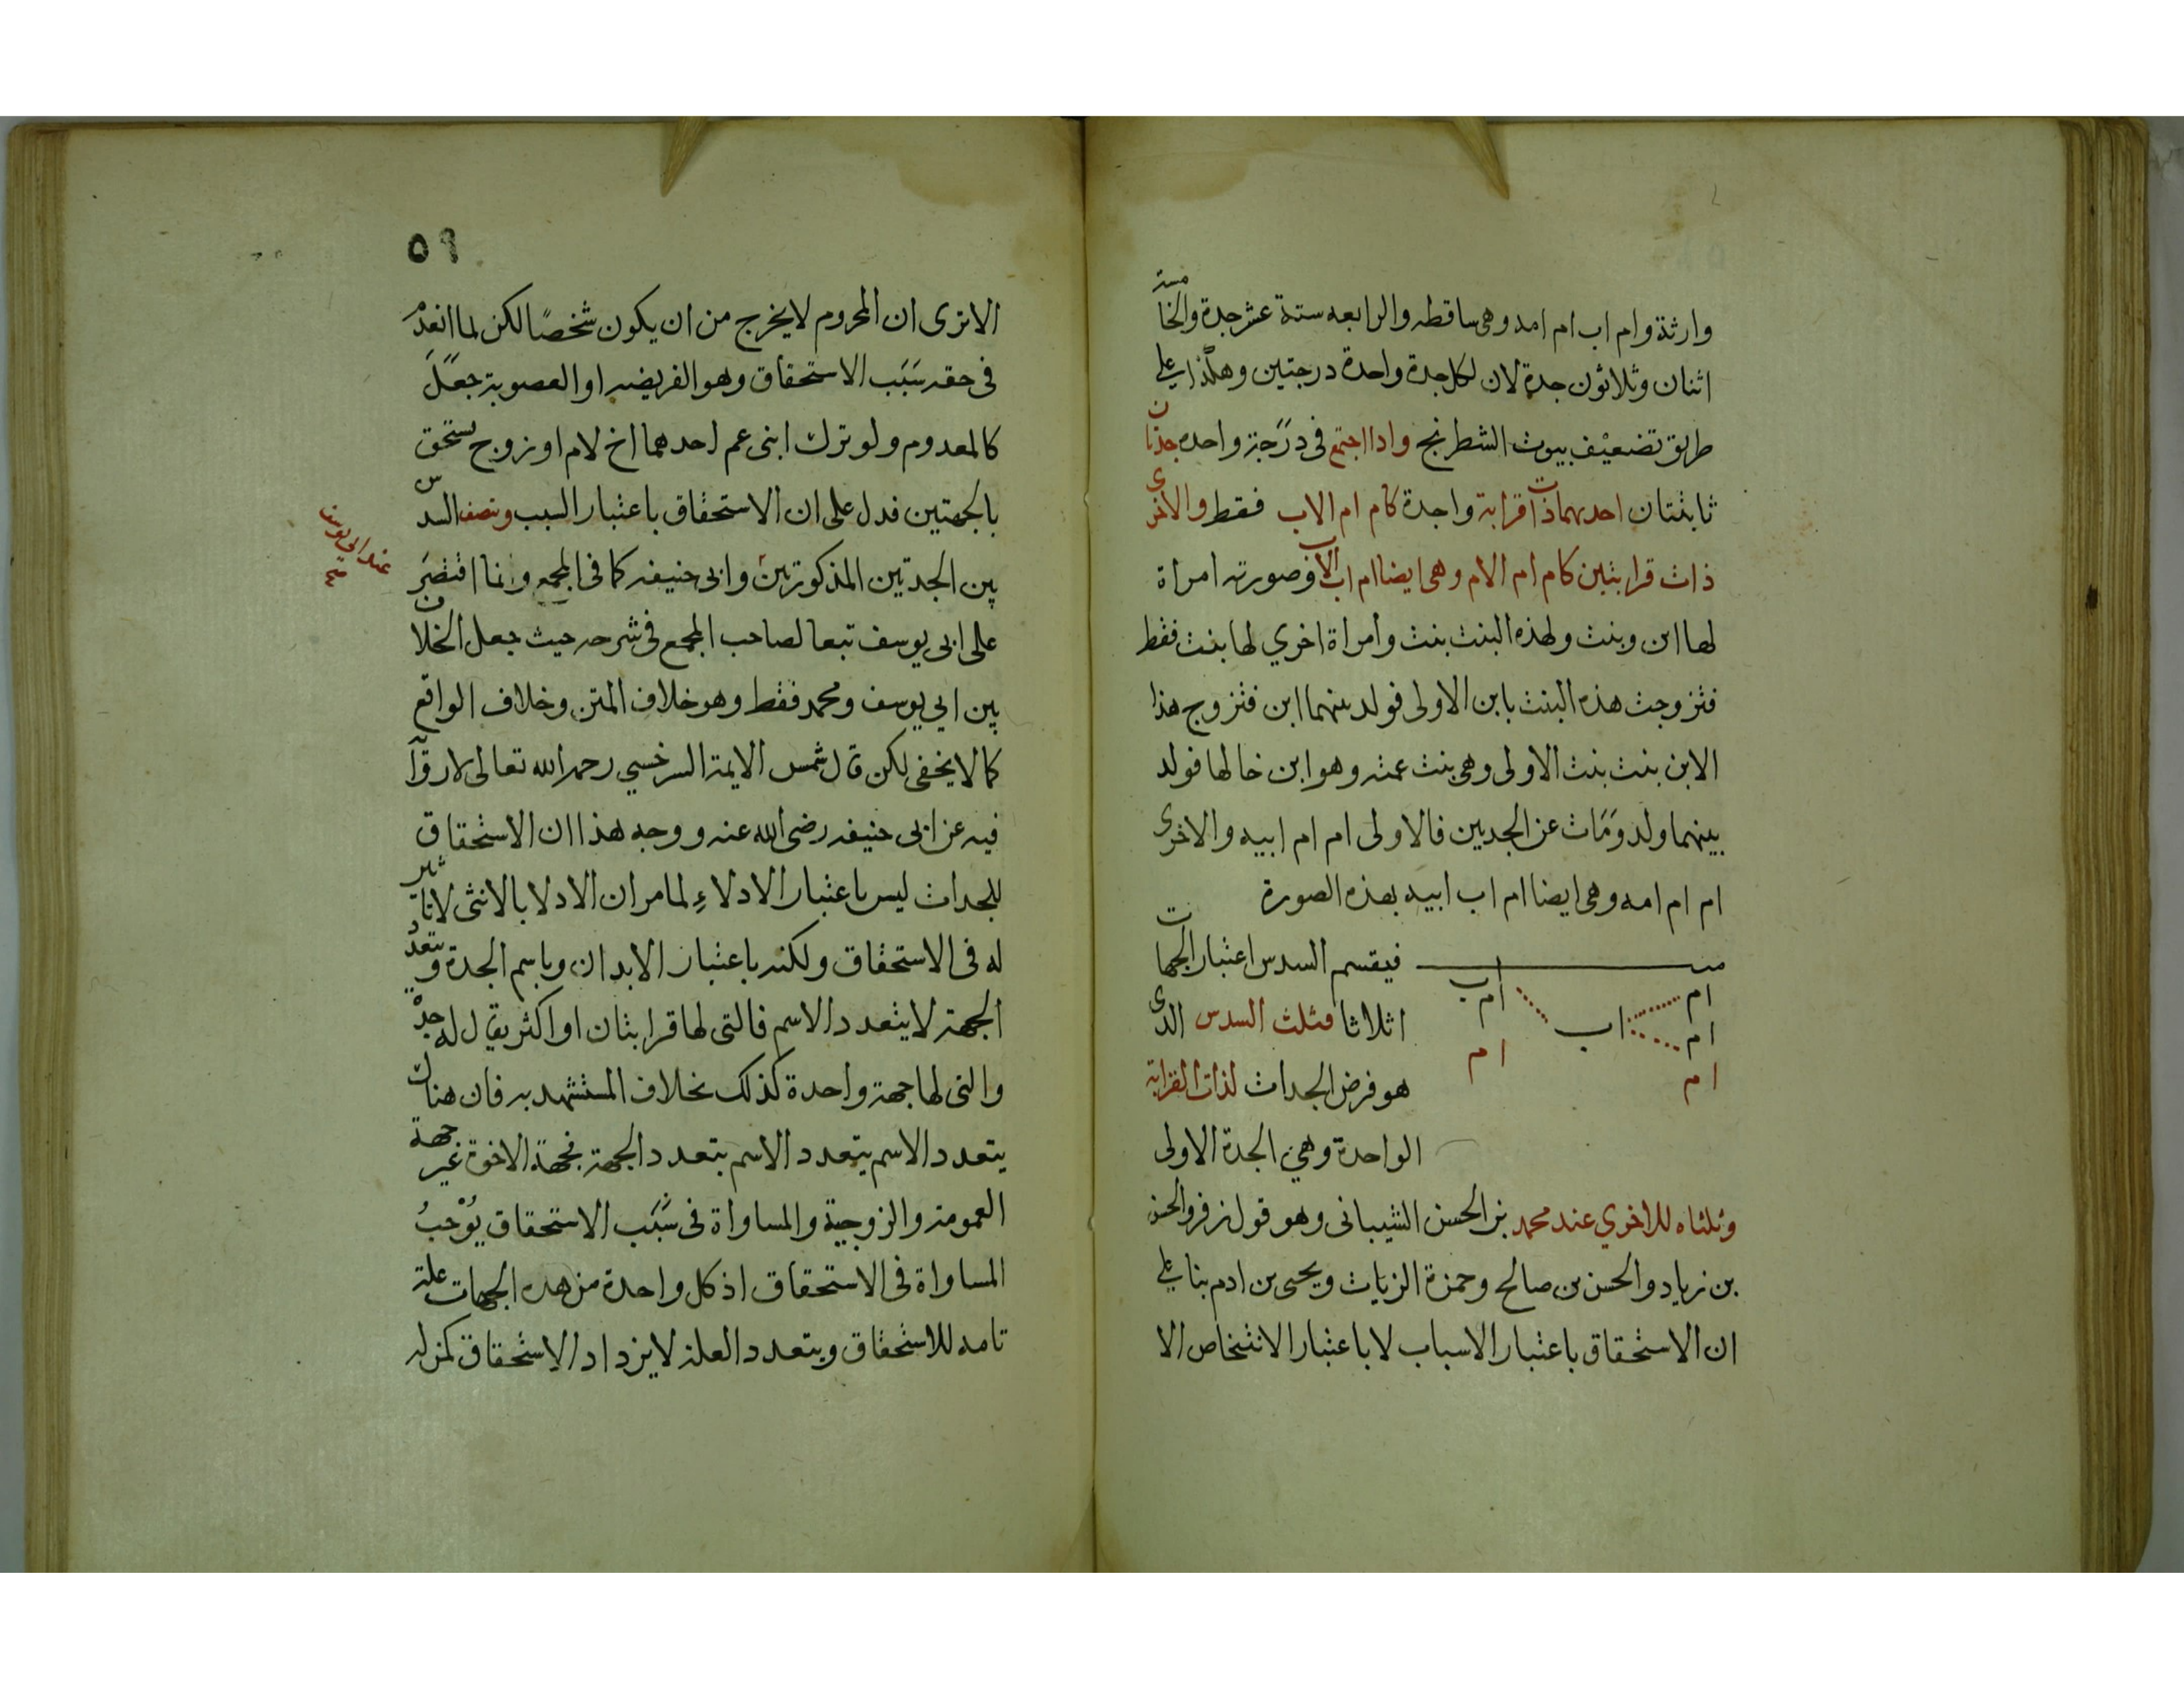 وارثة وام اب ام امه وهي ساقطه والرابعه ستة عشر جدة والخامسة
اثنان وثلاثون جدة لان لكل جدة واحدة درجتين وهكذا على
طريق تضعيف بيوت الشطرنج واذا اجتمع في درجة واحده جدتان
ثابتتان احدىهما ذات قرابة واحدة كام ام الاب فقط والاخرى
ذات قرابتين كام ام الام وهي ايضا ام اب الاب وصورته امراة
لها ابن وبنت ولهذه البنت بنت وامراة اخري لها بنت فقط
فتزوجت هذه البنت بابن الاولى فولد بينهما ابن فتزوج هذا
الابن بنت بنت الاولى وهي بنت عمته وهو ابن خالها فولد
بينهما ولد ومات عن الجدتين فالاولى ام ام ابيه والاخرى
ام ام امه وهي ايضا ام اب ابيه بهذه الصورة
فيقسم السدس اعتبار الجهات
ام
اب
ام
ام
اب
ام
ام
ام
اثلاثا فثلث السدس الذى
هو فرض الجدات لذات القرابة
الواحدة وهي الجدة الاولى
وثلثاه للاخري عند محمد بن الحسن الشيبانى وهو قول زفر والحسن
بن زياد والحسن بن صالح وحمزة الزيات ويحيى بن ادم بنا على
ان الاستحقاق باعتبار الاسباب لا باعتبار الاشخاص الا
٥٩
الا ترى ان المحروم لا يخرج من ان يكون شخصًا لكن لما انعدم
فى حقه سبب الاستحقاق وهو الفريضه او العصوبة جعل
كالمعدوم ولو ترك ابنى عم احدهما اخ لام او زوج يستحق
بالجهتين فدل على ان الاستحقاق باعتبار السبب ونصف السدس
بين الجدتين المذكورتين وابى حنيفه كما فى المجمع وانما اقتصر
عند ابى يوسف
على ابى يوسف تبعا لصاحب المجمع فى شرحه حيث جعل الخلاف
بين ابي يوسف ومحمد فقط وهو خلاف المتن وخلاف الواقع
كما لا يخفى لكن قال شمس الايمة السرخسي رحمه الله تعالى لا رواية
فيه عن ابى حنيفه رضى الله عنه ووجه هذا ان الاستحقاق
للجدات ليس باعتبار الادلاء لما مر ان الادلا بالانثى لا تاثير
له فى الاستحقاق ولكنه باعتبار الابدان وباسم الجدة وبتعدد
الجهة لا يتعدد الاسم فالتى لها قرابتان او اكثر يقال له جدة
والتى لها جهة واحدة كذلك بخلاف المستشهد به فان هناك
يتعدد الاسم يتعدد الاسم بتعدد الجهة فجهة الاخوة غير جهة
العمومة والزوجية والمساواة فى سبب الاستحقاق يوجب
المساواة فى الاستحقاق اذ كل واحدة من هذه الجهات علة
تامه للاستحقاق وبتعدد العلة لا يزداد الاستحقاق كمن له